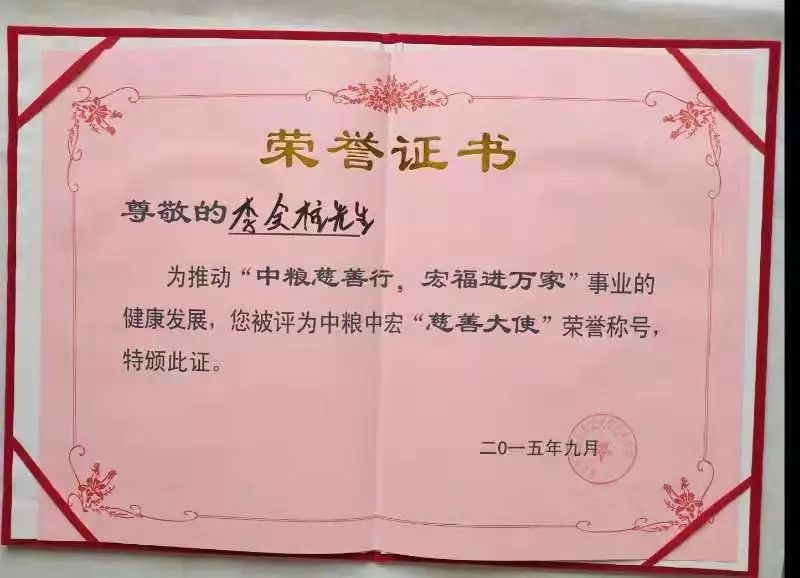 荣誉证书
尊敬的李文柱先生
为推动“中粮慈善行，宏福进万家”事业的
健康发展，您被评为中粮中宏“慈善大使”荣誉称号，
特颁此证。
二0一五年九月